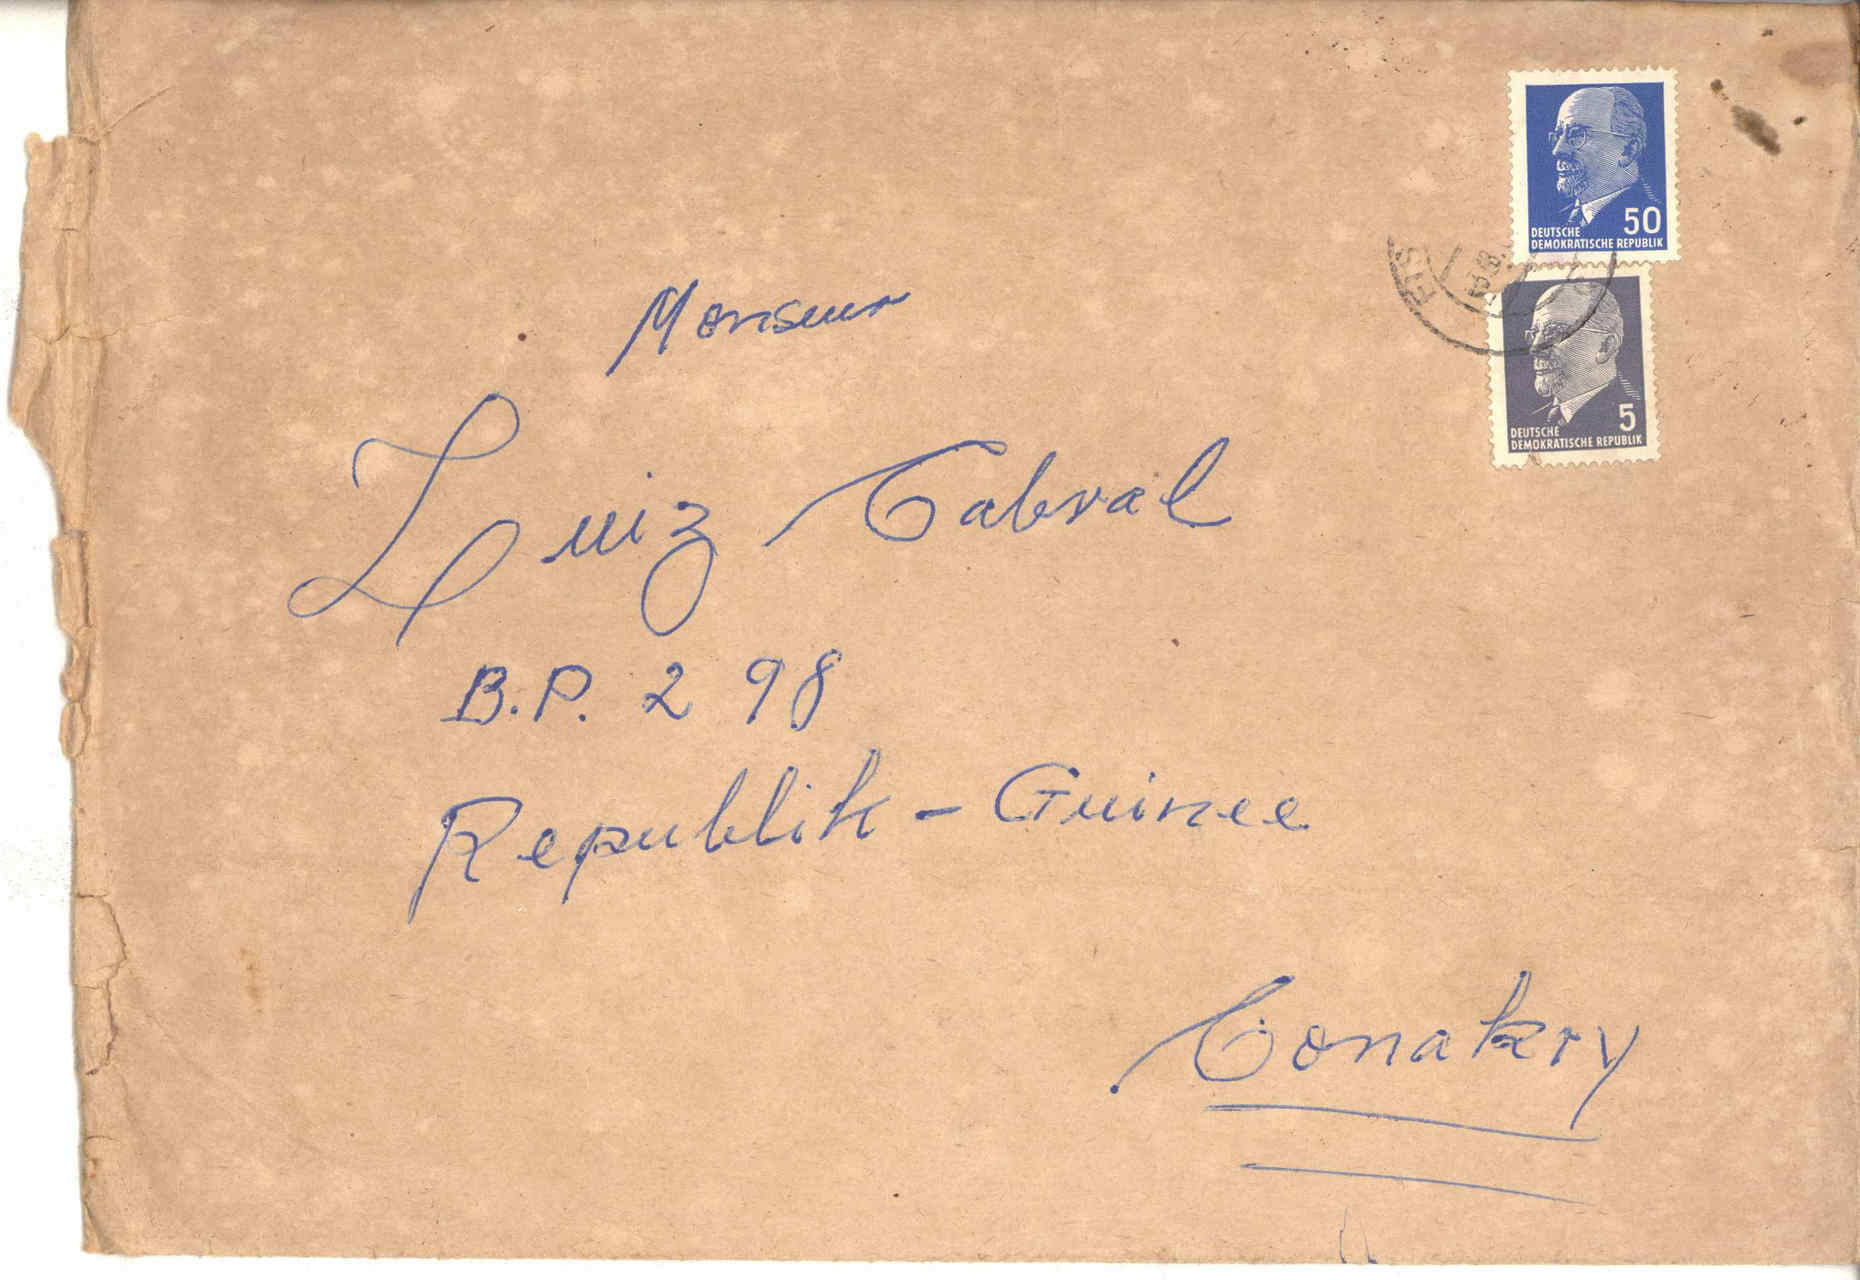 50
DEUTSCHE
DEMOKRATISCHE REPUBLIK
5
DEUTSCHE
DEMOKRATISCHE REPUBLIK
Monsieur
Luiz Cabral
B.P. 298
Republik - Guinee
Conakry